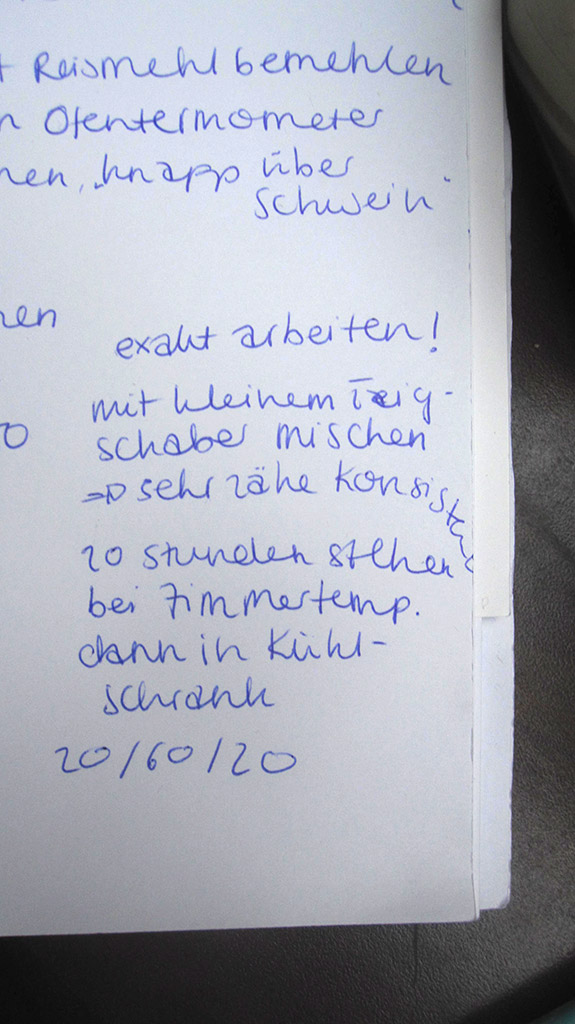 t Reismehl bemehlen
n Ofentermometer
nen, „knapp über
schwein"
nen
exakt arbeiten!
mit kleinem Teig-
0
schaber mischen
⇒ sehr zähe Konsistenz
20 stunden stehen
bei Zimmertemp.
dann in Kühl-
schrank
20/60/20